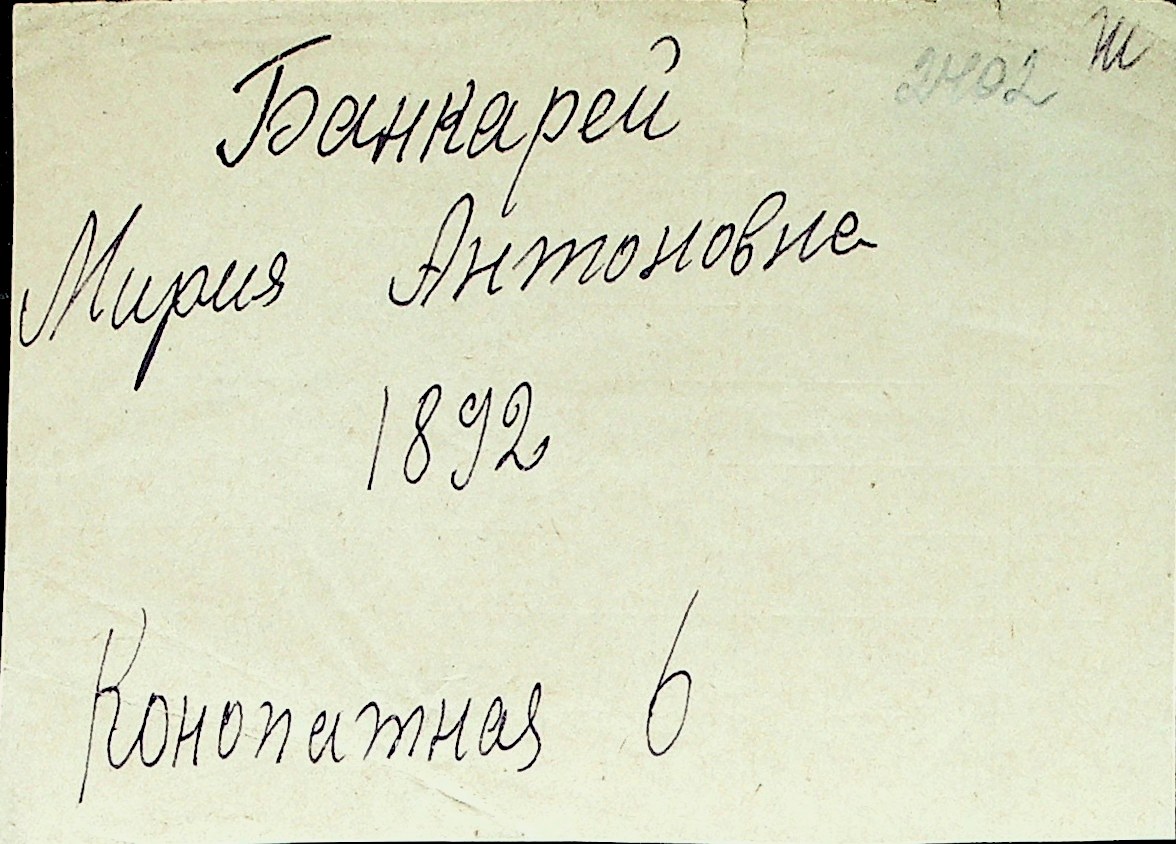 2402 Ж
Банкарей
Мирия Антоновна
1892
Конопатная 6